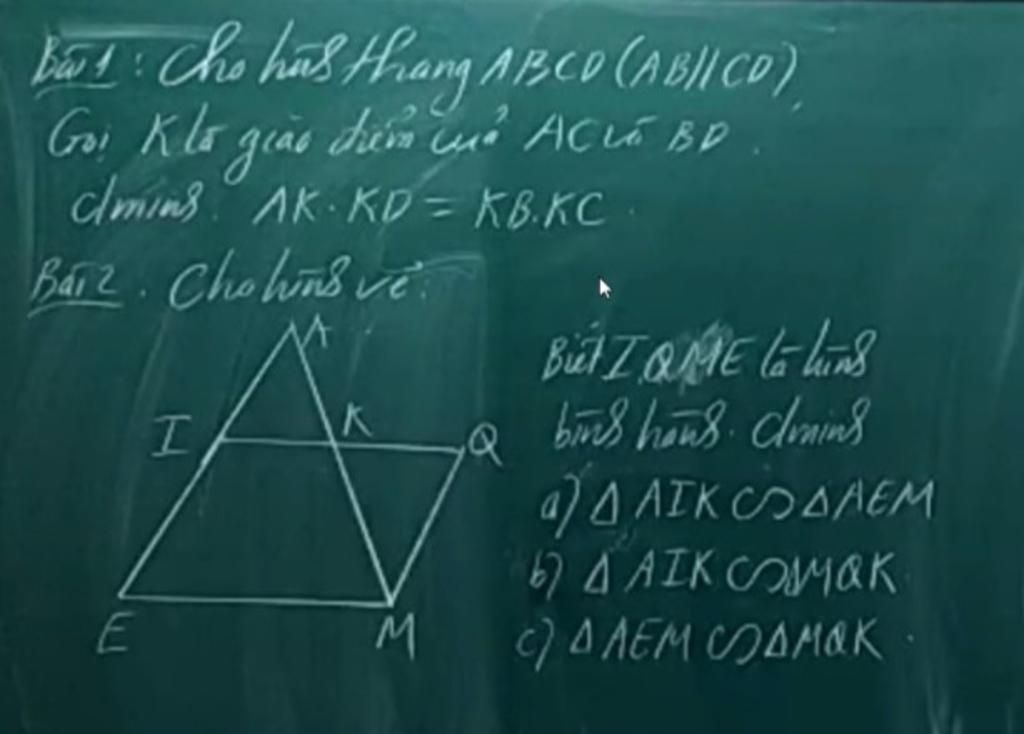 Bài 1: Cho hình thang ABCD (AB//CD).
Gọi K là giao điểm của AC và BD.
Cminh. AK.KD = KB.KC.
Bài 2. Cho hình vẽ.
A
I
K
Q
E
M
Biết IQME là hình
bình hành. Cminh
a) Δ AIK ∽ Δ AEM
b) Δ AIK ∽ Δ MQK
c) Δ AEM ∽ Δ MQK.